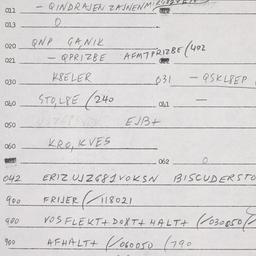 011 - QINDRAJEN ZAJNENM
013 0
020 QNP GA,NIK
021 - QPRIZBE AFMTPRIZBE (402
030 KBELER 031 - QSKLBEP
040 STO,LBE (240 041 -
050 EJB+
060 KRO, KVES
062 0
042 ERIZ UJZ681VOKSN BISCUDERSTO
900 FRIJER (/118021
900 VOSFLEKT+DOXT+HALT+ (/030850/
900 AFHALT+ (/060050 (790